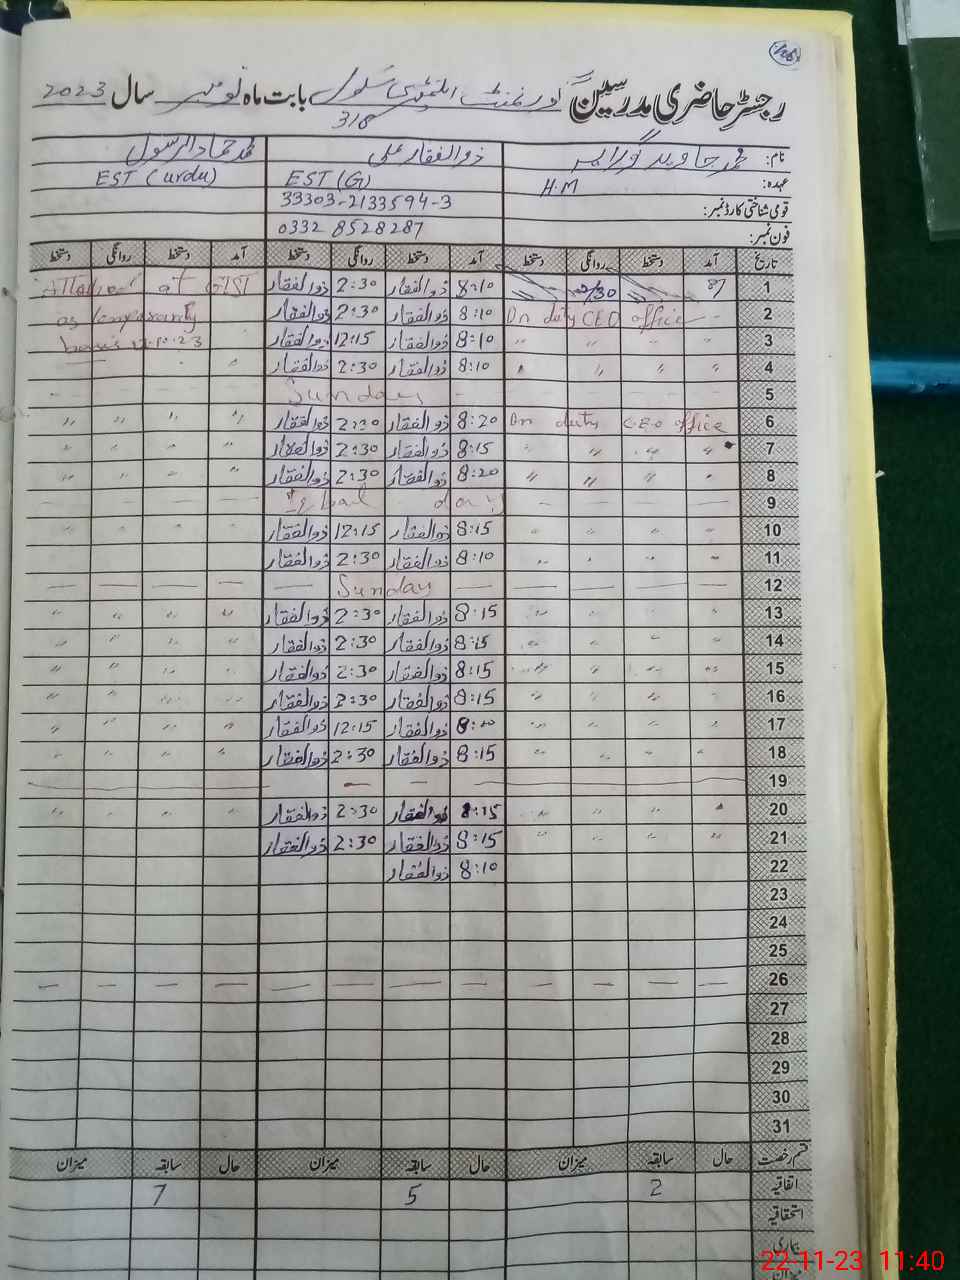 رجسٹر حاضری مدرسین گورنمنٹ ایلمنٹری سکول 318 بابت ماہ نومبر سال 2023
نام: محمد جاوید ذوالفقار علی محمد حماد الرسول
عہدہ: H.M EST (G) EST (urdu)
قومی شناختی کارڈ نمبر: 33303-2133594-3
فون نمبر: 0332 8528287
تاریخ آمد دستخط روانگی دستخط آمد دستخط روانگی دستخط آمد دستخط روانگی دستخط
1 8:10 ذوالفقار 2:30 ذوالفقار Attached at
2 On duty CEO office 8:10 ذوالفقار 2:30 ذوالفقار as temporarily
3 " " " " 8:10 ذوالفقار 12:15 ذوالفقار
4 " " " " 8:10 ذوالفقار 2:30 ذوالفقار
5 Sunday
6 On duty CEO office 8:20 ذوالفقار 2:30 ذوالفقار " " " "
7 " " " 8:15 ذوالفقار 2:30 ذوالفقار " " " "
8 " " " " 8:20 ذوالفقار 2:30 ذوالفقار " " " "
9 Iqbal day
10 " " " " 8:15 ذوالفقار 12:15 ذوالفقار " " " "
11 " " " " 8:10 ذوالفقار 2:30 ذوالفقار " " " "
12 Sunday
13 " " " " 8:15 ذوالفقار 2:30 ذوالفقار " " " "
14 " " " " 8:15 ذوالفقار 2:30 ذوالفقار " " " "
15 " " " " 8:15 ذوالفقار 2:30 ذوالفقار " " " "
16 " " " " 8:15 ذوالفقار 2:30 ذوالفقار " " " "
17 " " " " ذوالفقار 12:15 ذوالفقار " " " "
18 " " " " 8:15 ذوالفقار 2:30 ذوالفقار " " " "
19
20 " " " " 8:15 ذوالفقار 2:30 ذوالفقار " " " "
21 " " " " 8:15 ذوالفقار 2:30 ذوالفقار
22 8:10 ذوالفقار
23
24
25
26
27
28
29
30
31
قسم رخصت حال سابقہ میزان حال سابقہ میزان حال سابقہ میزان
اتفاقیہ 2 5 7
استحقاقیہ
بیماری
22-11-23 11:40